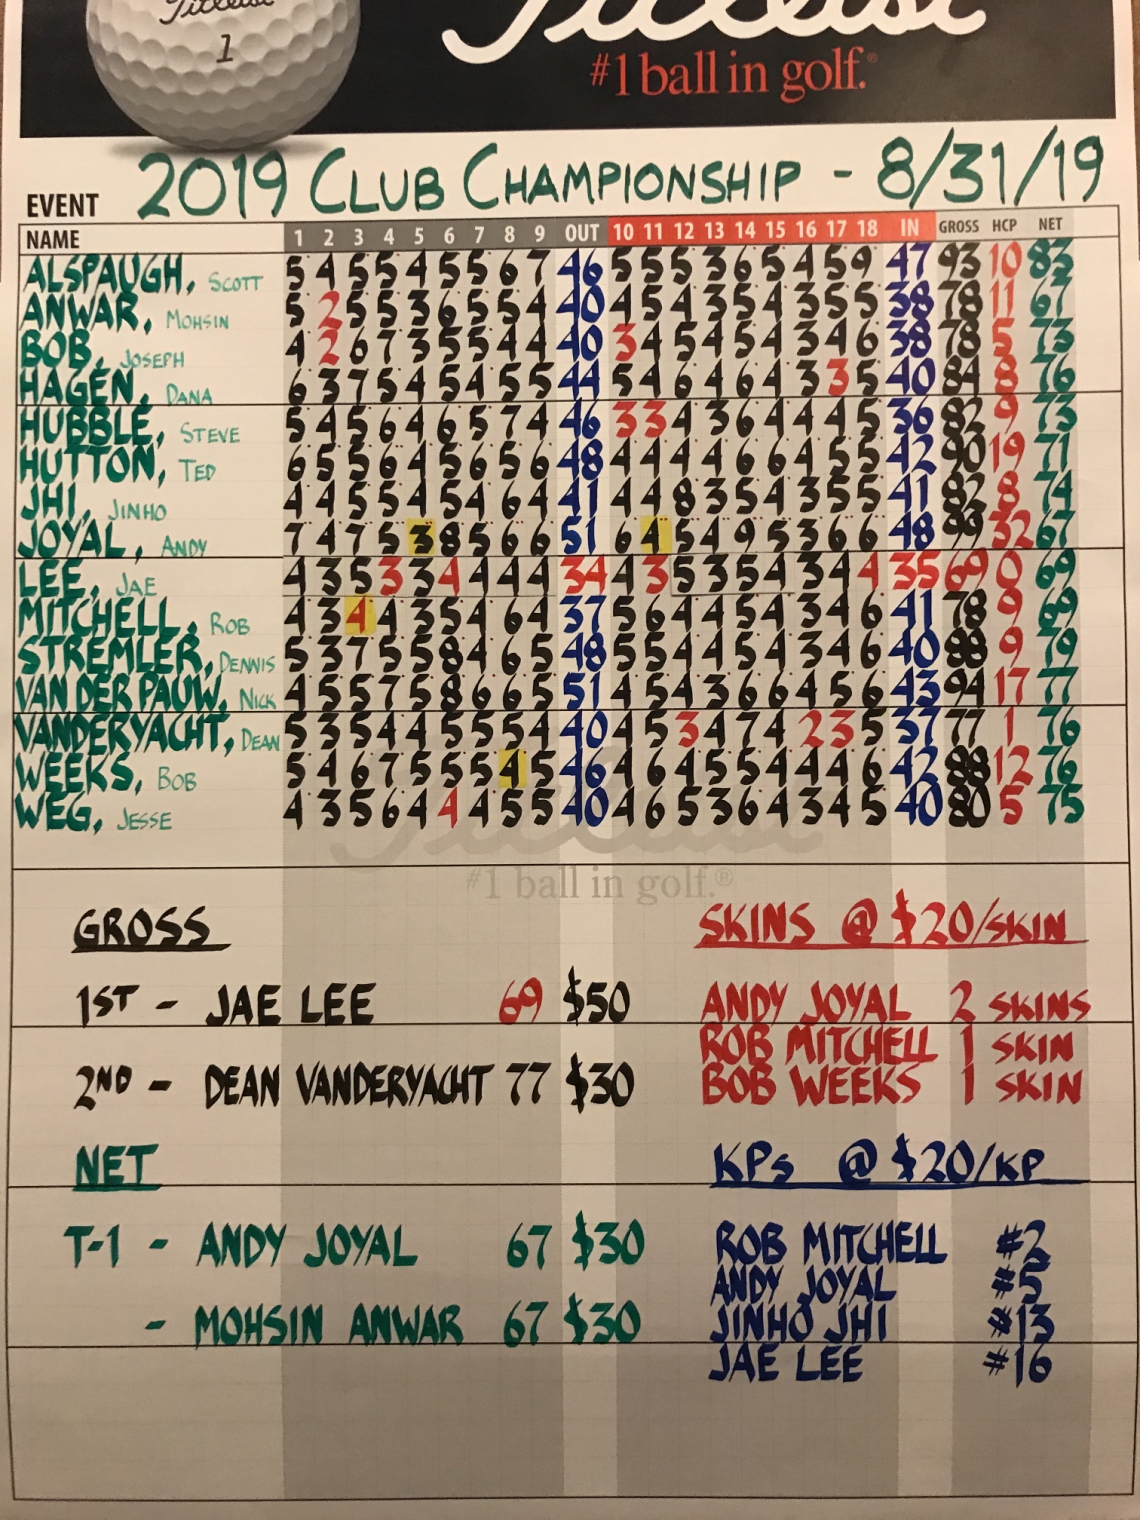 Titleist
1
Titleist
#1 ball in golf.®
EVENT 2019 CLUB CHAMPIONSHIP - 8/31/19
NAME 1 2 3 4 5 6 7 8 9 OUT 10 11 12 13 14 15 16 17 18 IN GROSS HCP NET
ALSPAUGH, SCOTT 5 4 5 5 4 5 5 6 7 46 5 5 5 3 6 5 4 5 9 47 93 10 83
ANWAR, MOHSIN 5 2 5 5 3 6 5 5 4 40 4 5 4 3 5 4 3 5 5 38 78 11 67
BOB, JOSEPH 4 2 6 7 3 5 5 4 4 40 3 4 5 4 5 4 3 4 6 38 78 5 73
HAGEN, DANA 6 3 7 5 4 5 4 5 5 44 5 4 6 4 6 4 3 3 5 40 84 8 76
HUBBLE, STEVE 5 4 5 6 4 6 5 7 4 46 3 3 4 3 6 4 4 4 5 36 82 9 73
HUTTON, TED 6 5 5 6 4 5 6 5 6 48 4 4 4 4 6 6 4 5 5 42 90 19 71
JHI, JINHO 4 4 5 5 4 5 4 6 4 41 4 4 8 3 5 4 3 5 5 41 82 8 74
JOYAL, ANDY 7 4 7 5 3 8 5 6 6 51 6 4 5 4 9 5 3 6 6 48 99 32 67
LEE, JAE 4 3 5 3 3 4 4 4 4 34 4 3 5 3 5 4 3 4 4 35 69 0 69
MITCHELL, ROB 4 3 4 4 3 5 4 6 4 37 5 6 4 4 5 4 3 4 6 41 78 9 69
STREMLER, DENNIS 5 3 7 5 5 8 4 6 5 48 5 5 4 4 5 4 3 4 6 40 88 9 79
VAN DER PAUW, NICK 4 5 5 7 5 8 6 6 5 51 4 5 4 3 6 6 4 5 6 43 94 17 77
VANDERYACHT, DEAN 5 3 5 4 4 5 5 5 4 40 4 5 3 4 7 4 2 3 5 37 77 1 76
WEEKS, BOB 5 4 6 7 5 5 5 4 5 46 4 6 4 5 5 4 4 4 6 42 88 12 76
WEG, JESSE 4 3 5 6 4 4 4 5 5 40 4 6 5 3 6 4 3 4 5 40 80 5 75
Titleist
#1 ball in golf.®
GROSS
1ST - JAE LEE 69 $50
2ND - DEAN VANDERYACHT 77 $30
NET
T-1 - ANDY JOYAL 67 $30
- MOHSIN ANWAR 67 $30
SKINS @ $20/SKIN
ANDY JOYAL 2 SKINS
ROB MITCHELL 1 SKIN
BOB WEEKS 1 SKIN
KPs @ $20/KP
ROB MITCHELL #2
ANDY JOYAL #5
JINHO JHI #13
JAE LEE #16